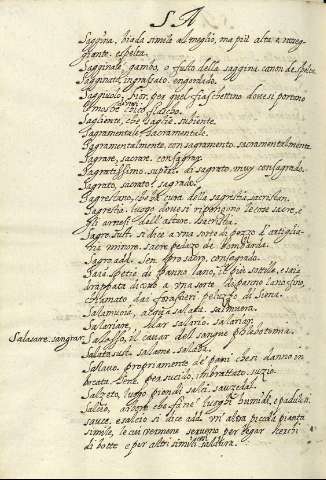 SA
Saggina. biada simile al meglio, ma più alta a rosseg-
giante. espelta.
Sagginale, gambo, o fusto della saggina. canon de spelta.
Sagginato, ingrassato. engordado.
Saggiuolo, fior, per quel fiaschettino dove si portono
le mosche. frasco.
Sagliente, che saglie. subiente.
Sagramentale, sacramentale.
Sagramentalmente, con sagramento. sacramentalmente.
Sagrare, sacrare. consagrar.
Sagratissimo. superl. di sagrato. muy consagrado.
Sagrato, sacrato. sagrado.
Sagrestano, che ha cura della sagrestia. sacristan.
Sagrestia. luogo dove si ripongono le cose sacre, e
gli arnesi dell' altare. sacristia.
Sagro. sust. si dice a una sorte di pezzo d'artiglia-
ria minore. sacre pedazo de lombarda.
Sagro. add. sacro. consagrado.
Saia spetie di panno lano, sottile, e saia
drappata dicesi a una sorte di panno lano fino,
chiamato dai forastieri peluzzo di Siena.
Salamuoia, acqua salata. salmuera.
Salariare, dar salario. salariar.
Salasare. sangrar. Salasso, il cavar del sangue. phlebotomia.
Salata sust. salame. salata.
Salavo. propriamente de' pani che si danno in
bucata. sucido, imbrattato. suzio.
Salceto, luogo pien di salci. sauzedal.
Salcio, arbore che fa ne' luoghi humidi, e paduli.
sauce. e salcio si dice ad un' altra piccola pianta
simile, le cui vermene servono per legar cerchi
di botte e per altri simili.